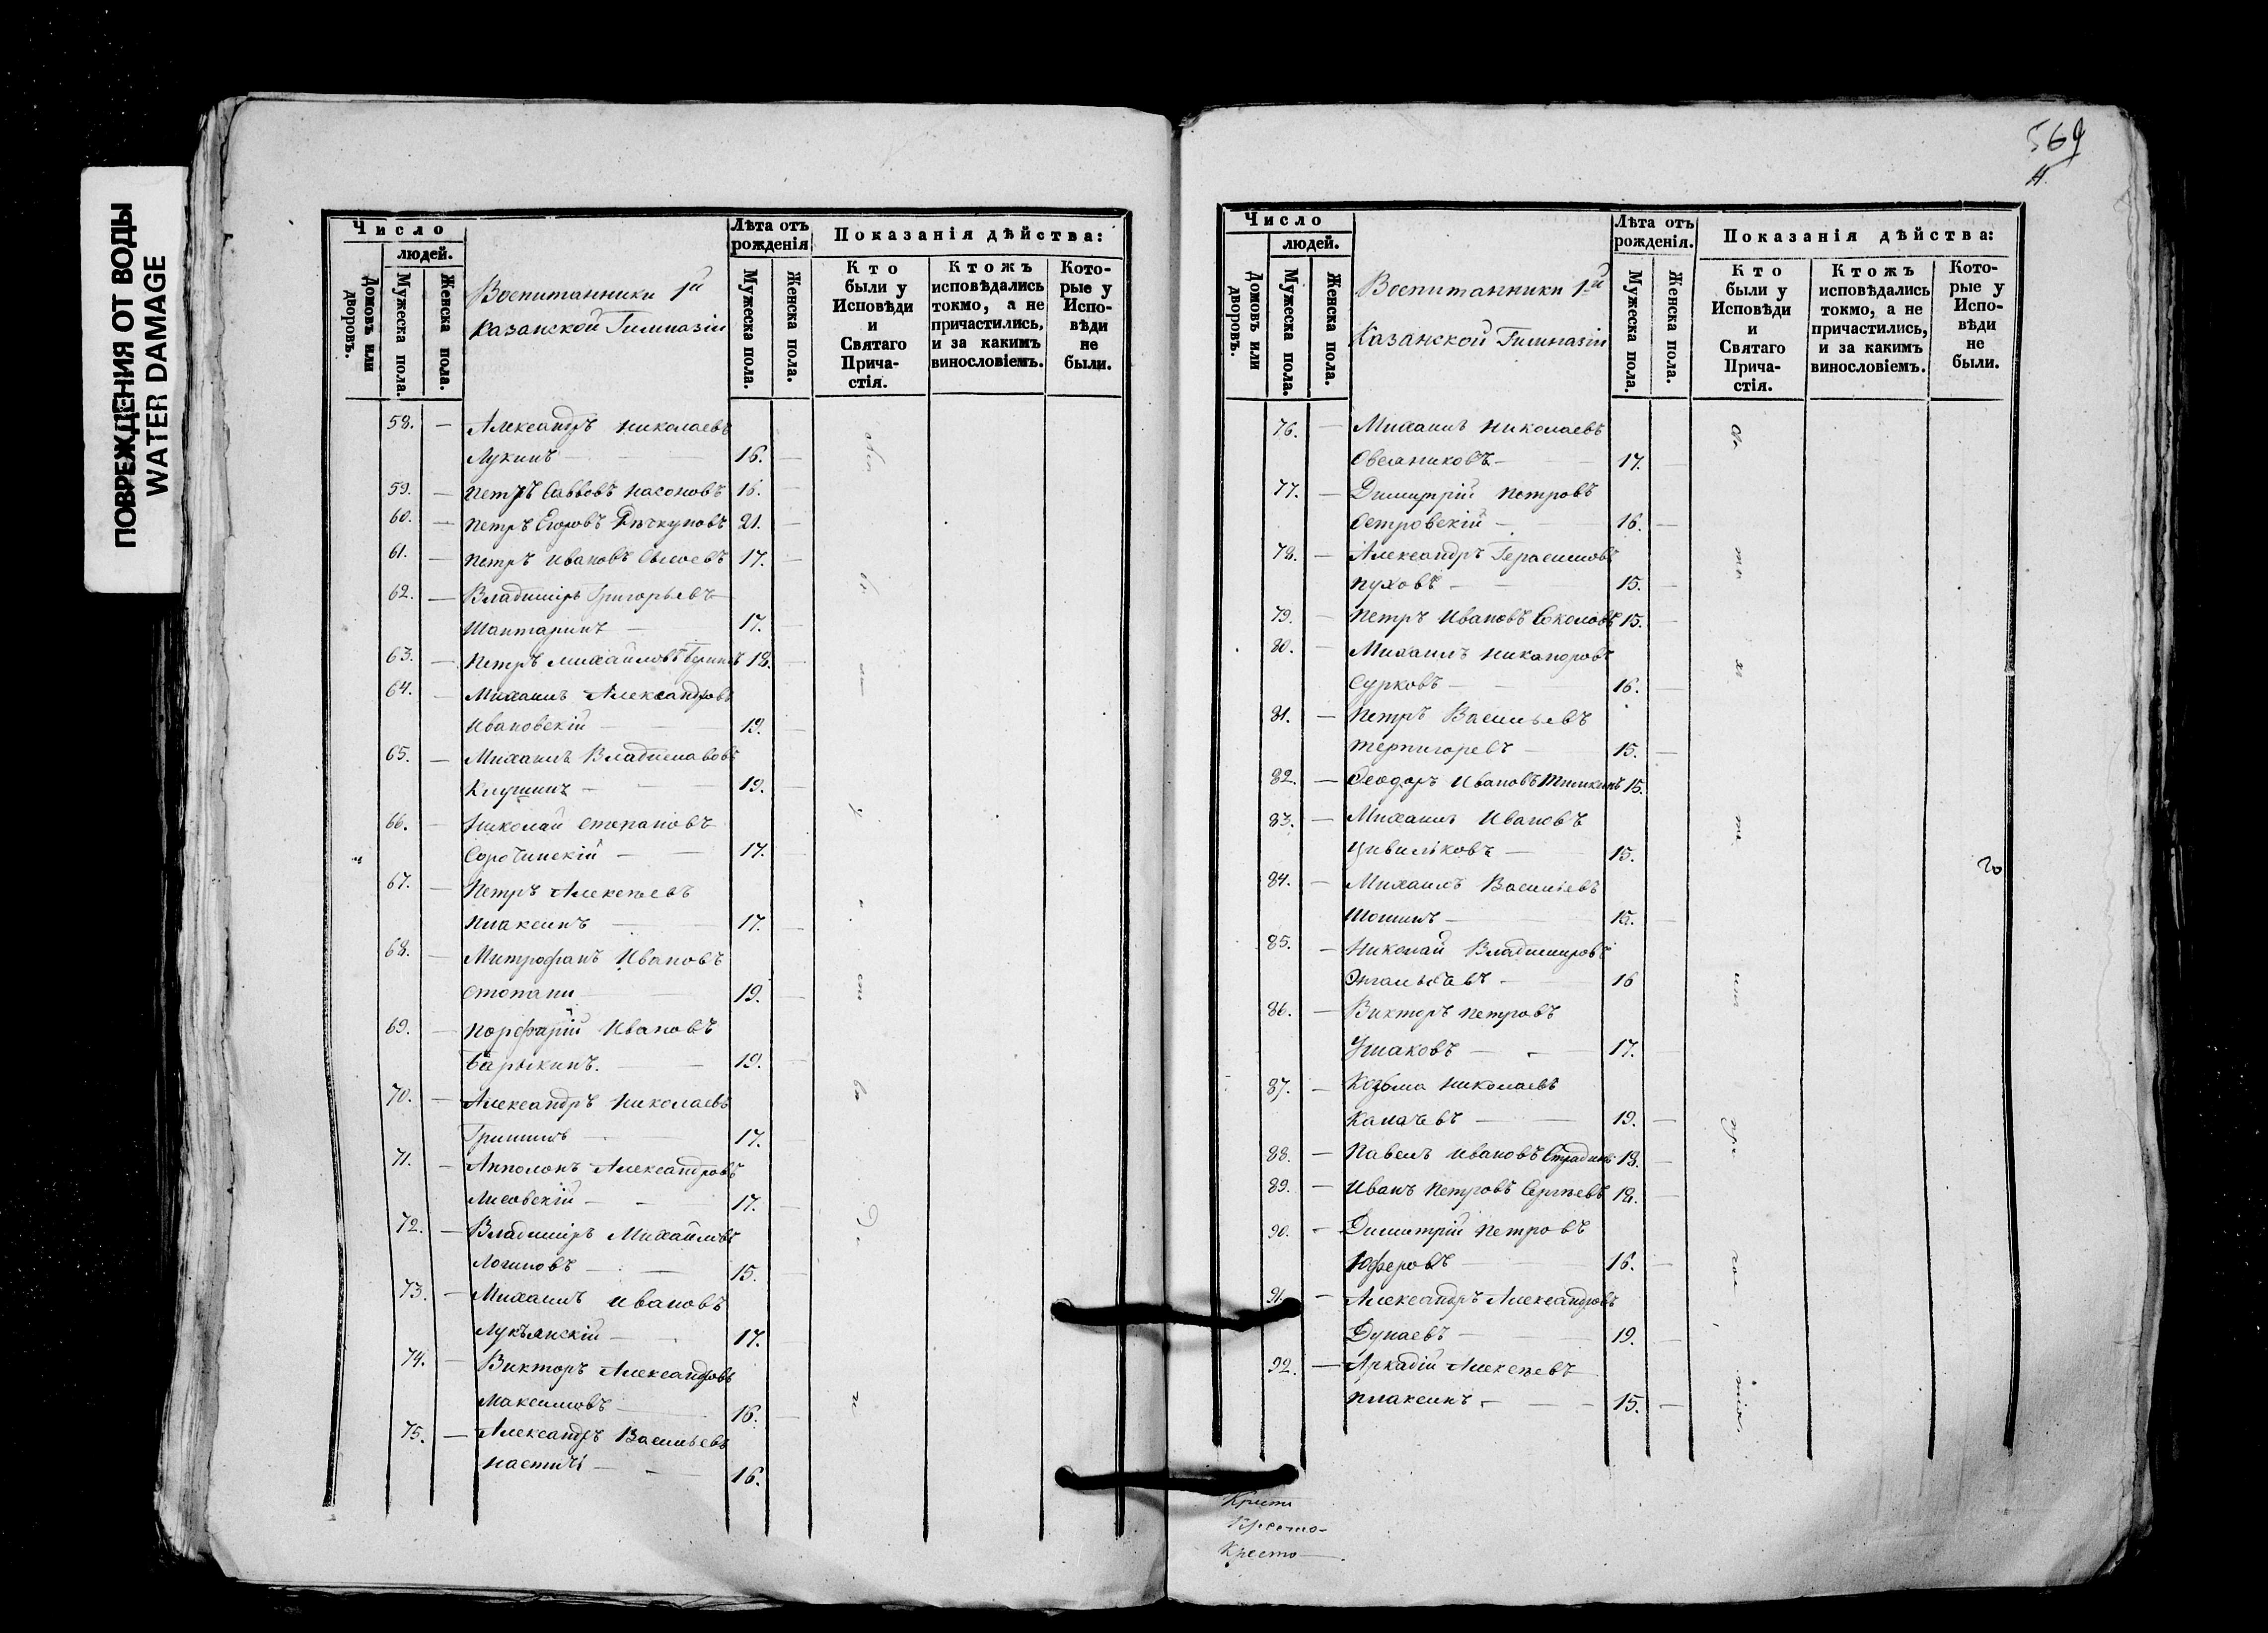 ПОВРЕЖДЕНИЯ ОТ ВОДЫ
WATER DAMAGE
Число
людей.
Домовъ или дворовъ.
Мужеска пола.
Женска пола.
Воспитанники 1й
Казанской Гимназіи
Лѣта отъ рожденія
Мужеска пола.
Женска пола.
Показанія дѣйства:
Кто были у Исповѣди и Святаго Прича-стія.
Ктожъ исповѣдались токмо, а не причастились, и за какимъ винословіемъ.
Кото-рые у Испо-вѣди не были.
58. — Александръ Николаевъ
Лукинъ — 16. —
59. — Петръ Саввовъ Насоновъ 16. —
60. — Петръ Егоровъ 21. —
61. — Петръ Ивановъ Сысоевъ 17. —
62. — Владиміръ Григорьевъ
Шантаринъ — 17. —
63. — Петръ Михайловъ 18. —
64. — Михаилъ Александровъ
Ивановскій — 19. —
65. — Михаилъ Владиславовъ
Клушинъ — 19. —
66. — Николай Степановъ
Сорочинскій — 17. —
67. — Петръ Алексѣевъ
Плаксинъ — 17. —
68. — Митрофанъ Ивановъ
Стопани — 19. —
69. — Порфирій Ивановъ
Барыкинъ. — 19. —
70. — Александръ Николаевъ
Гришинъ — 17.
71. — Апполонъ Александровъ
Лисовскій — 17. —
72. — Владиміръ Михайловъ
Логиновъ — 15. —
73. — Михаилъ Ивановъ
Лукъянскій — 17.
74. — Викторъ Александровъ
Максимовъ — 16. —
75. — Александръ Васильевъ
16.
569
Число
людей.
Домовъ или дворовъ.
Мужеска пола.
Женска пола.
Воспитанники 1й
Казанской Гимназіи
Лѣта отъ рожденія.
Мужеска пола.
Женска пола.
Показанія дѣйства:
Кто были у Исповѣди и Святаго Прича-стія.
Ктожъ исповѣдались токмо, а не причастились, и за какимъ винословіемъ.
Кото-рые у Испо-вѣди не были.
76. — Михаилъ Николаевъ
Овсяниковъ — 17. —
77. — Димитрій Петровъ
Островскій — 16. —
78. — Александръ Герасимовъ
Пуховъ — 15. —
79. — Петръ Ивановъ Соколовъ 15. —
80. — Михаилъ Никаноровъ
Сурковъ — 16. —
81. — Петръ Васильевъ
Терпигоревъ — 15. —
82. — Ѳеодоръ Ивановъ 15.
83. — Михаилъ Ивановъ
Цивильковъ — 15.
84. — Михаилъ Васильевъ
Шошинъ — 15. —
85. — Николай Владиміровъ
16
86. — Викторъ Петровъ
Ушаковъ — 17.
87. — Козьма Николаевъ
Калачевъ — 19. —
88. — Павелъ Ивановъ 18. —
89. — Иванъ Петровъ Сергѣевъ 18. —
90. — Димитрій Петровъ
Юферовъ — 16. —
91. — Александръ Александровъ
Дунаевъ — 19. —
92. — Аркадій Алексѣевъ
Плаксинъ — 15. —
Кресто-
Кресто